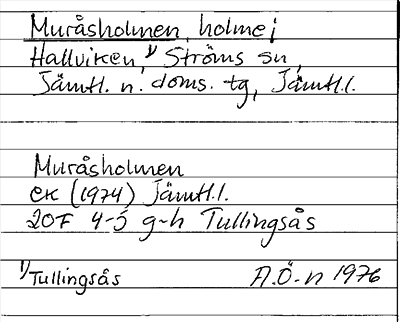 Muråsholmen, holme i
Hallviken, 1) Ströms sn,
Jämtl. n. doms. tg, Jämtl.l.
Muråsholmen
ek (1974) Jämtl.l.
20F 4-5 g-h Tullingsås
1) Tullingsås A.Ö-n 1976